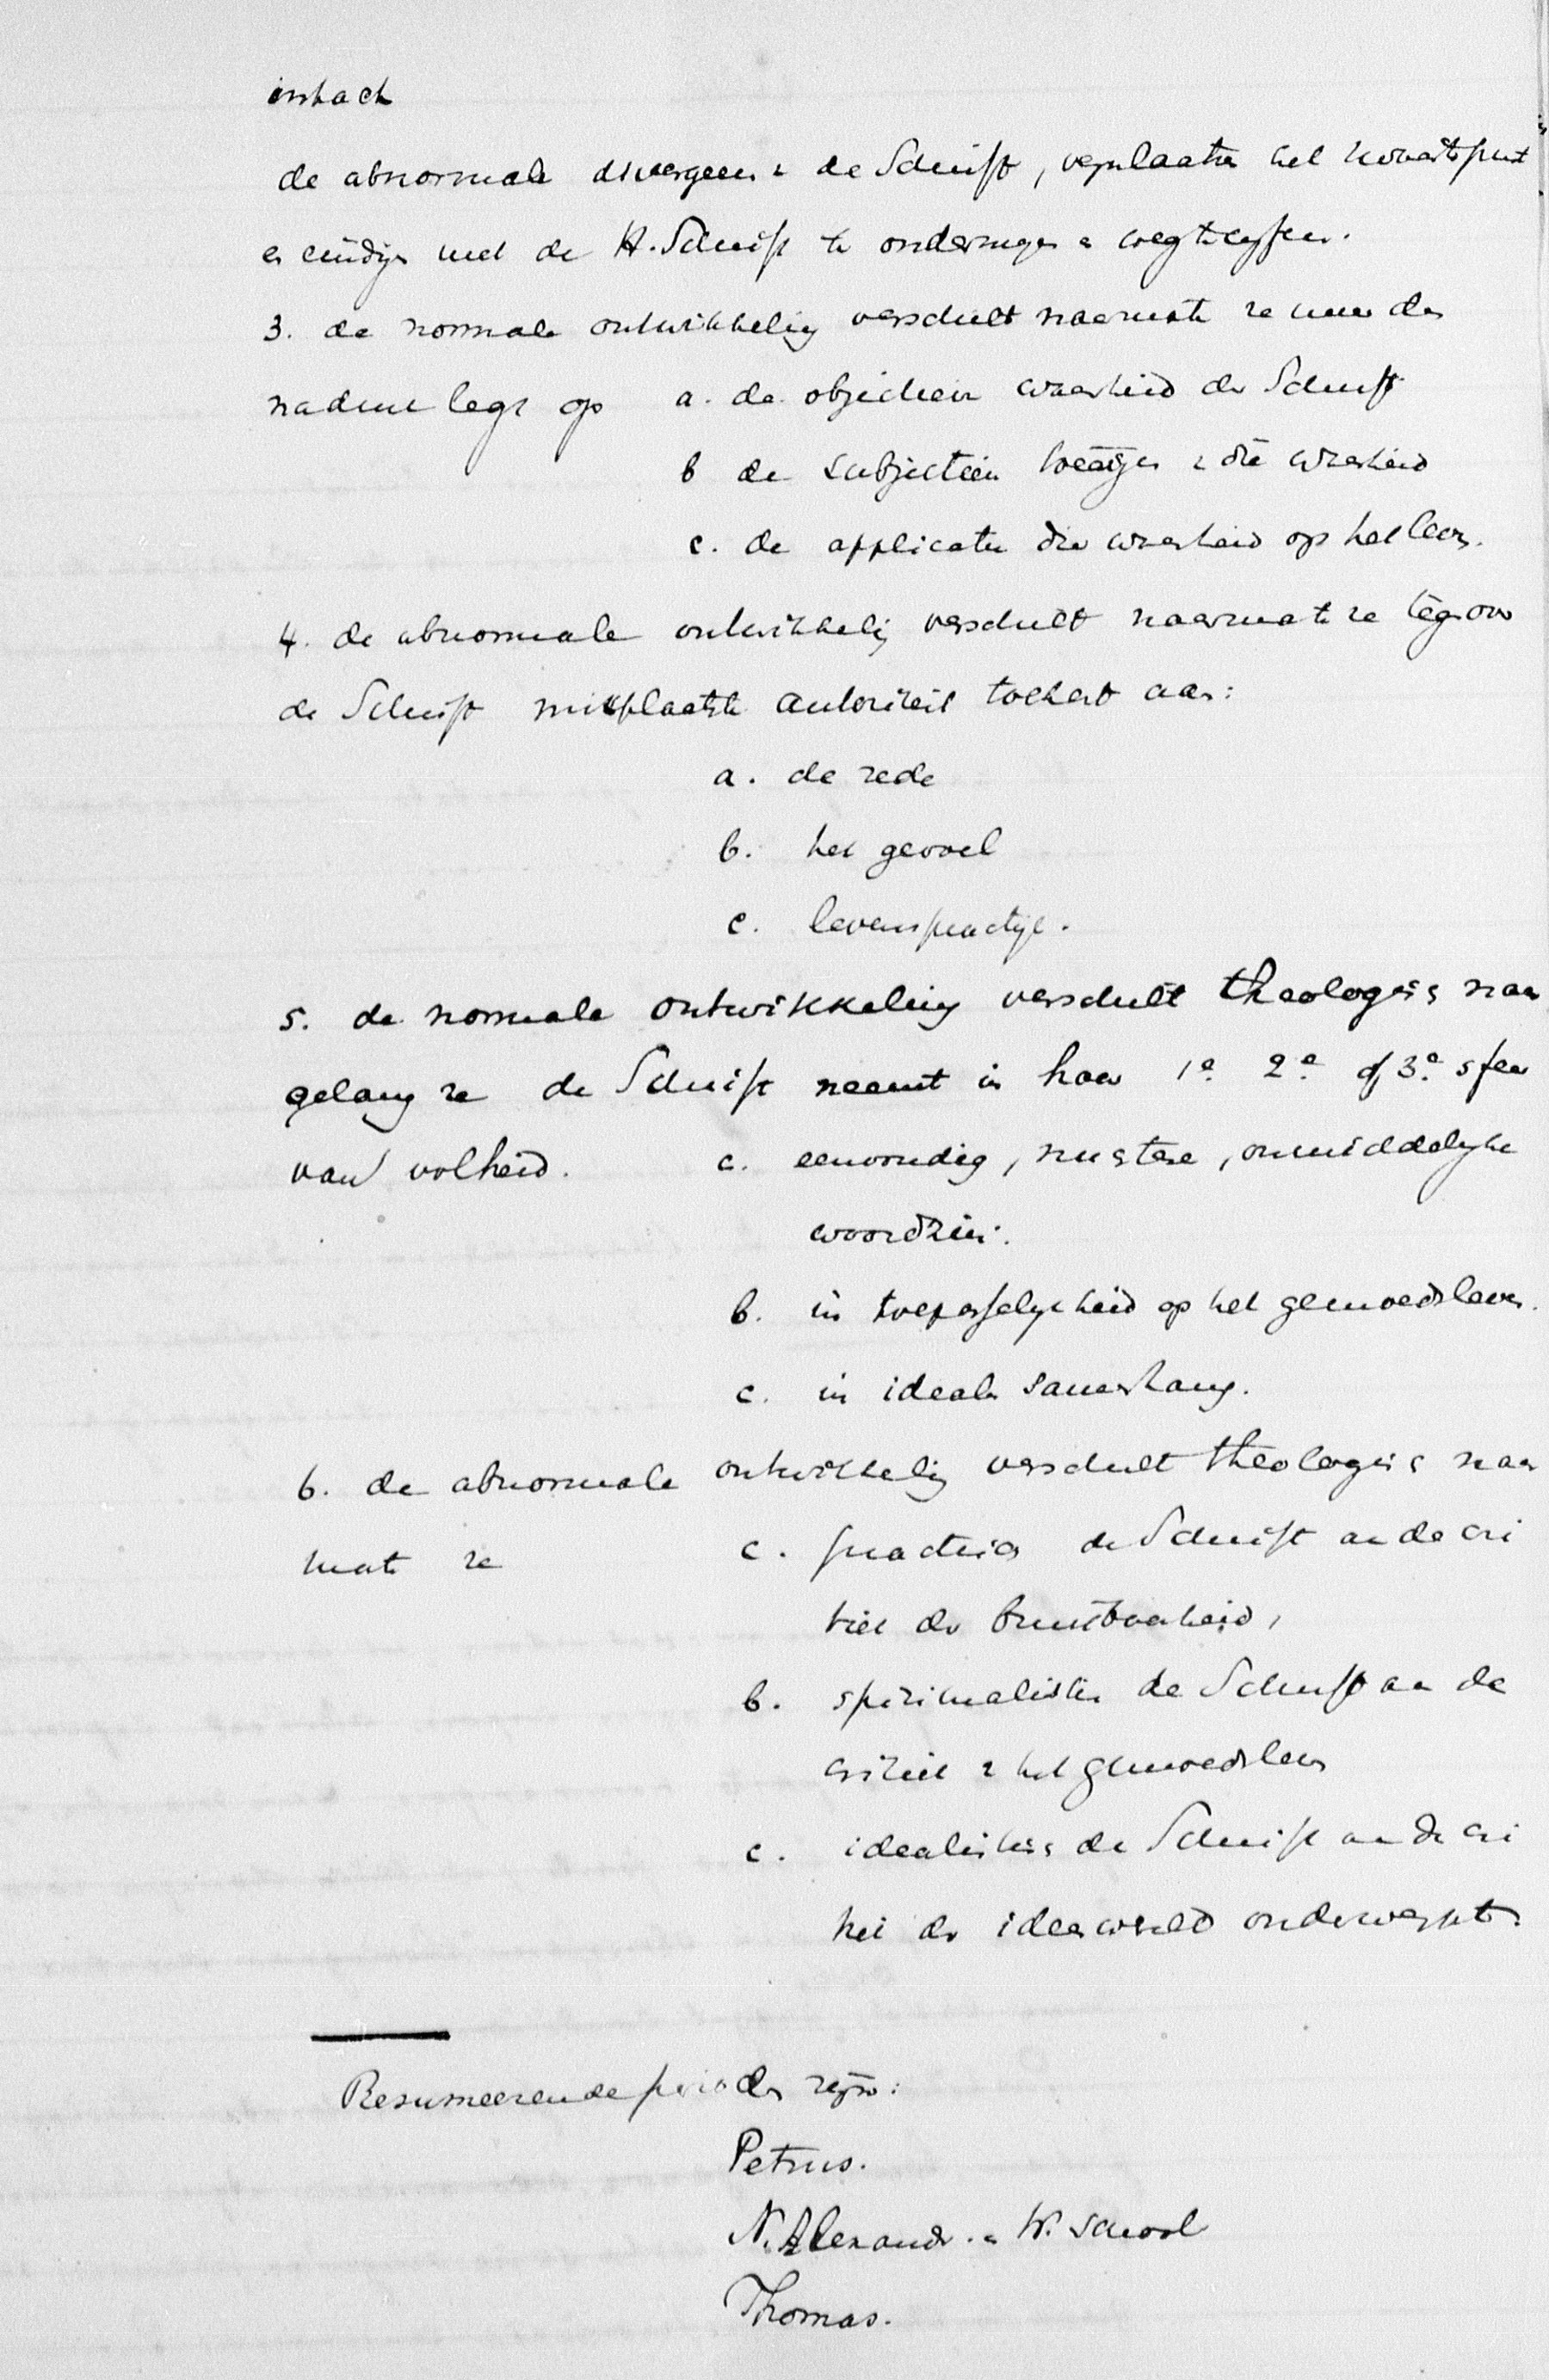 de abnormale divergeer v de Schrift, verplaatse het zwaartepunt
e eindige met de H. Schrift te ondermijnen e weg te cijferen.
3. de normale ontwikkeling verschilt naarmate ze meer de
nadruk legt op a. de objectieve waarheid der Schrift
b de subjectieve v die waarheid
c. de applicatie dier waarheid op het leven.
4. de abnormale ontwikkelig verschilt naarmate ze tegenov
de Schrift misplaatste autoriteit toekent aan:
a. de rede
b. het gevoel
c. levenspractijk.
5. de normale ontwikkeling verschilt theologis naar
gelang ze de Schrift neemt in haar 1e 2e of 3e sfeer
van volheid. a. eenvoudig, nuchtere, onmiddelyke
woordzin.
b. in toepasselykheid op het gemoedsleven.
c. in ideale samenhang.
6. de abnormale ontwikkelig verschilt theologis naar
mate ze a. practies de Schrift aan de cri
tiek der bruikbaarheid,
b. spiritualisties de Schrift aan de
critiek v het gemoedsleven
c. idealisties de Schrift aan de cri
tiek der ideewereld onderwerpt.
Resumeerende perioden zijn:
Petrus.
N. Alexandr. e W. School
Thomas.